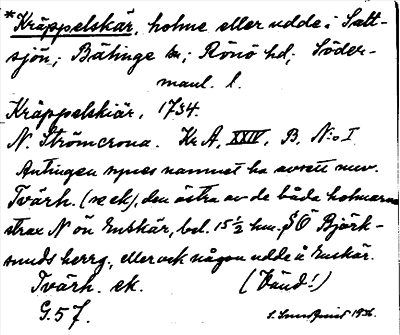 *Kräppelskär, holme eller udde i Salt-
sjön; Bälinge sn; Rönö hd; Söder-
manl. l.
Kräppelskiär, 1734.
N. Strömcrona. Kr. A, XXIV, B, No 1
Antingen synes namnet ha avsett nuv.
Tvärh. (se ek), den östra av de båda holmarna
strax N ön Enskär, bel. 15½ hm. SÖ Björk-
sunds herrg., eller ock någon udde å Enskär.
Tvärh. ek. (Vänd!)
G. 57. 1936.